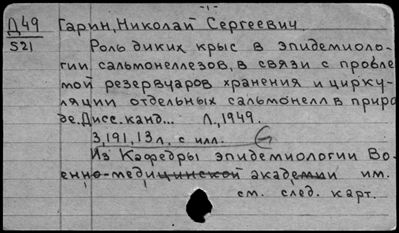 -1-
Д49 Гарин, Николай Сергеевич.
521 Роль диких крыс в эпидемиоло-
гии сальмонеллезов, в связи с пробле
мой резервуаров хранения и цирку-
ляции отдельных сальмонелл в приро
де. Дисс. канд... Л., 1949.
3,191,13л, с илл.
Из Кафедры эпидемиологии Во-
енно-медицинской академии им.
см. след. карт.